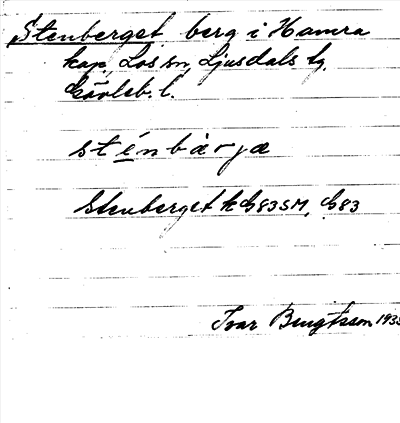 Stenberget berg i Hamra
kap, Los sn, Ljusdals tg.
Gävleb. l.
sténbàrjæ
Stenberget k G83SM, G83
Ivar Bengtsson 1935